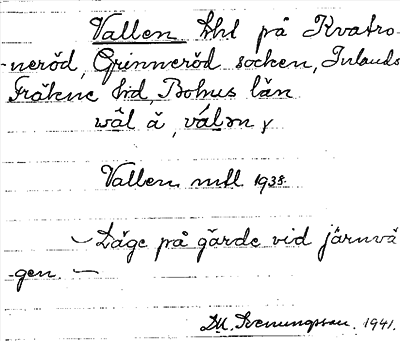 Vallen Lht på Kvatro-
neröd, Grinneröd socken, Inlands
Fräkne hd, Bohus län
wâl å, válən y
Vallen mtl 1938.
- Läge på gärde vid järnvä
gen. -
M. Svenungsson. 1941.